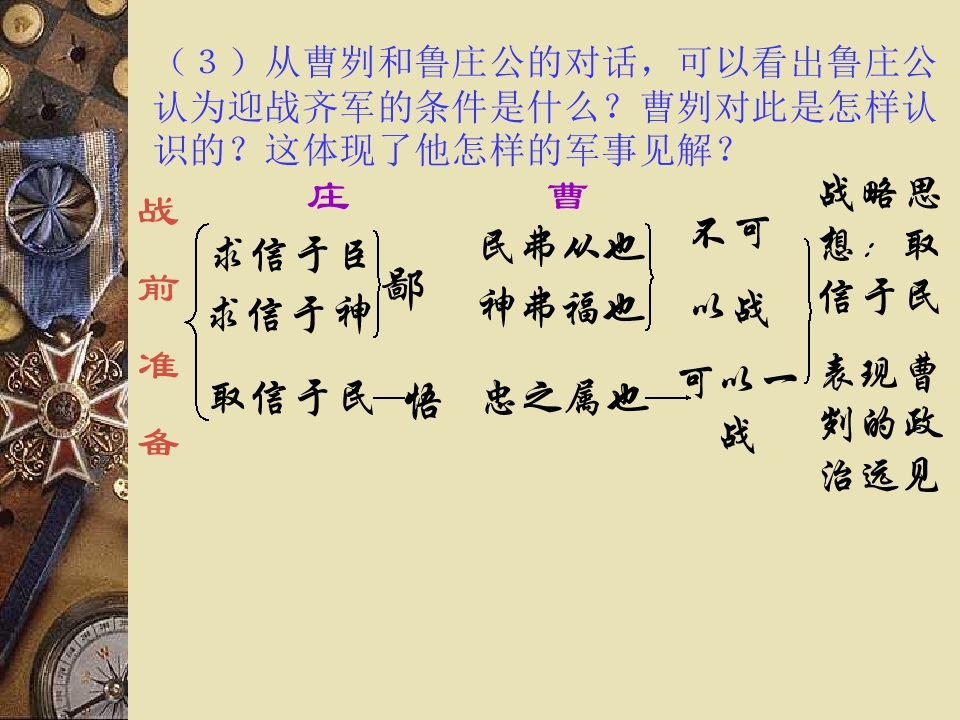 （３）从曹刿和鲁庄公的对话，可以看出鲁庄公
认为迎战齐军的条件是什么？曹刿对此是怎样认
识的？这体现了他怎样的军事见解？
战前准备
庄
曹
求信于臣
求信于神
鄙
民弗从也
神弗福也
不可
以战
取信于民
悟
忠之属也
可以一
战
战略思
想：取
信于民
表现曹
刿的政
治远见